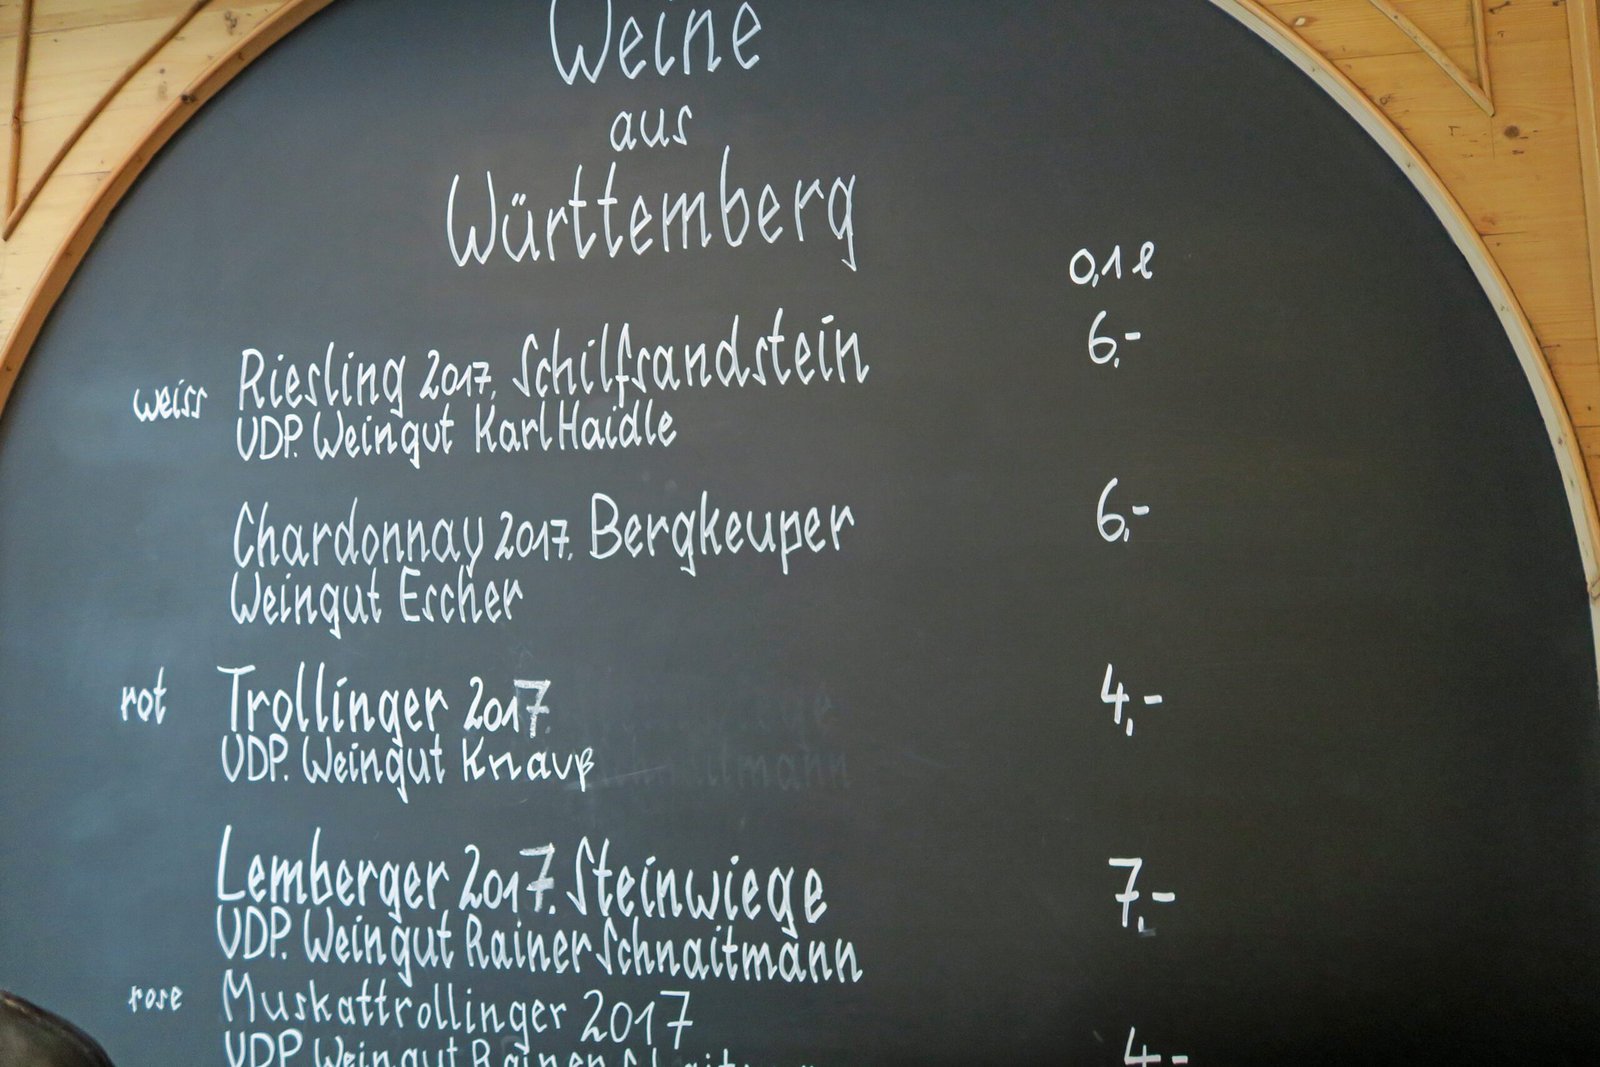 Weine
aus
Württemberg
0,1 l
weiss Riesling 2017. Schilfsandstein 6,-
VDP. Weingut Karl Haidle
Chardonnay 2017. Bergkeuper 6,-
Weingut Escher
rot Trollinger 2017 4,-
VDP. Weingut Knauß
Lemberger 2017. Steinwiege 7,-
VDP. Weingut Rainer Schnaitmann
rose Muskattrollinger 2017
VDP. Weingut Rainer Schnaitmann 4,-